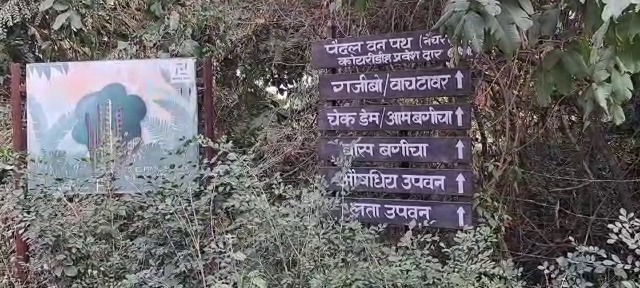 पैदल वन पथ (नेचर
कोटरीडीह प्रवेश द्वार
गजीबो/वाचटावर ↑
चेक डेम/आमबगीचा ↑
बांस बगीचा ↑
औषधिय उपवन ↑
लता उपवन ↑